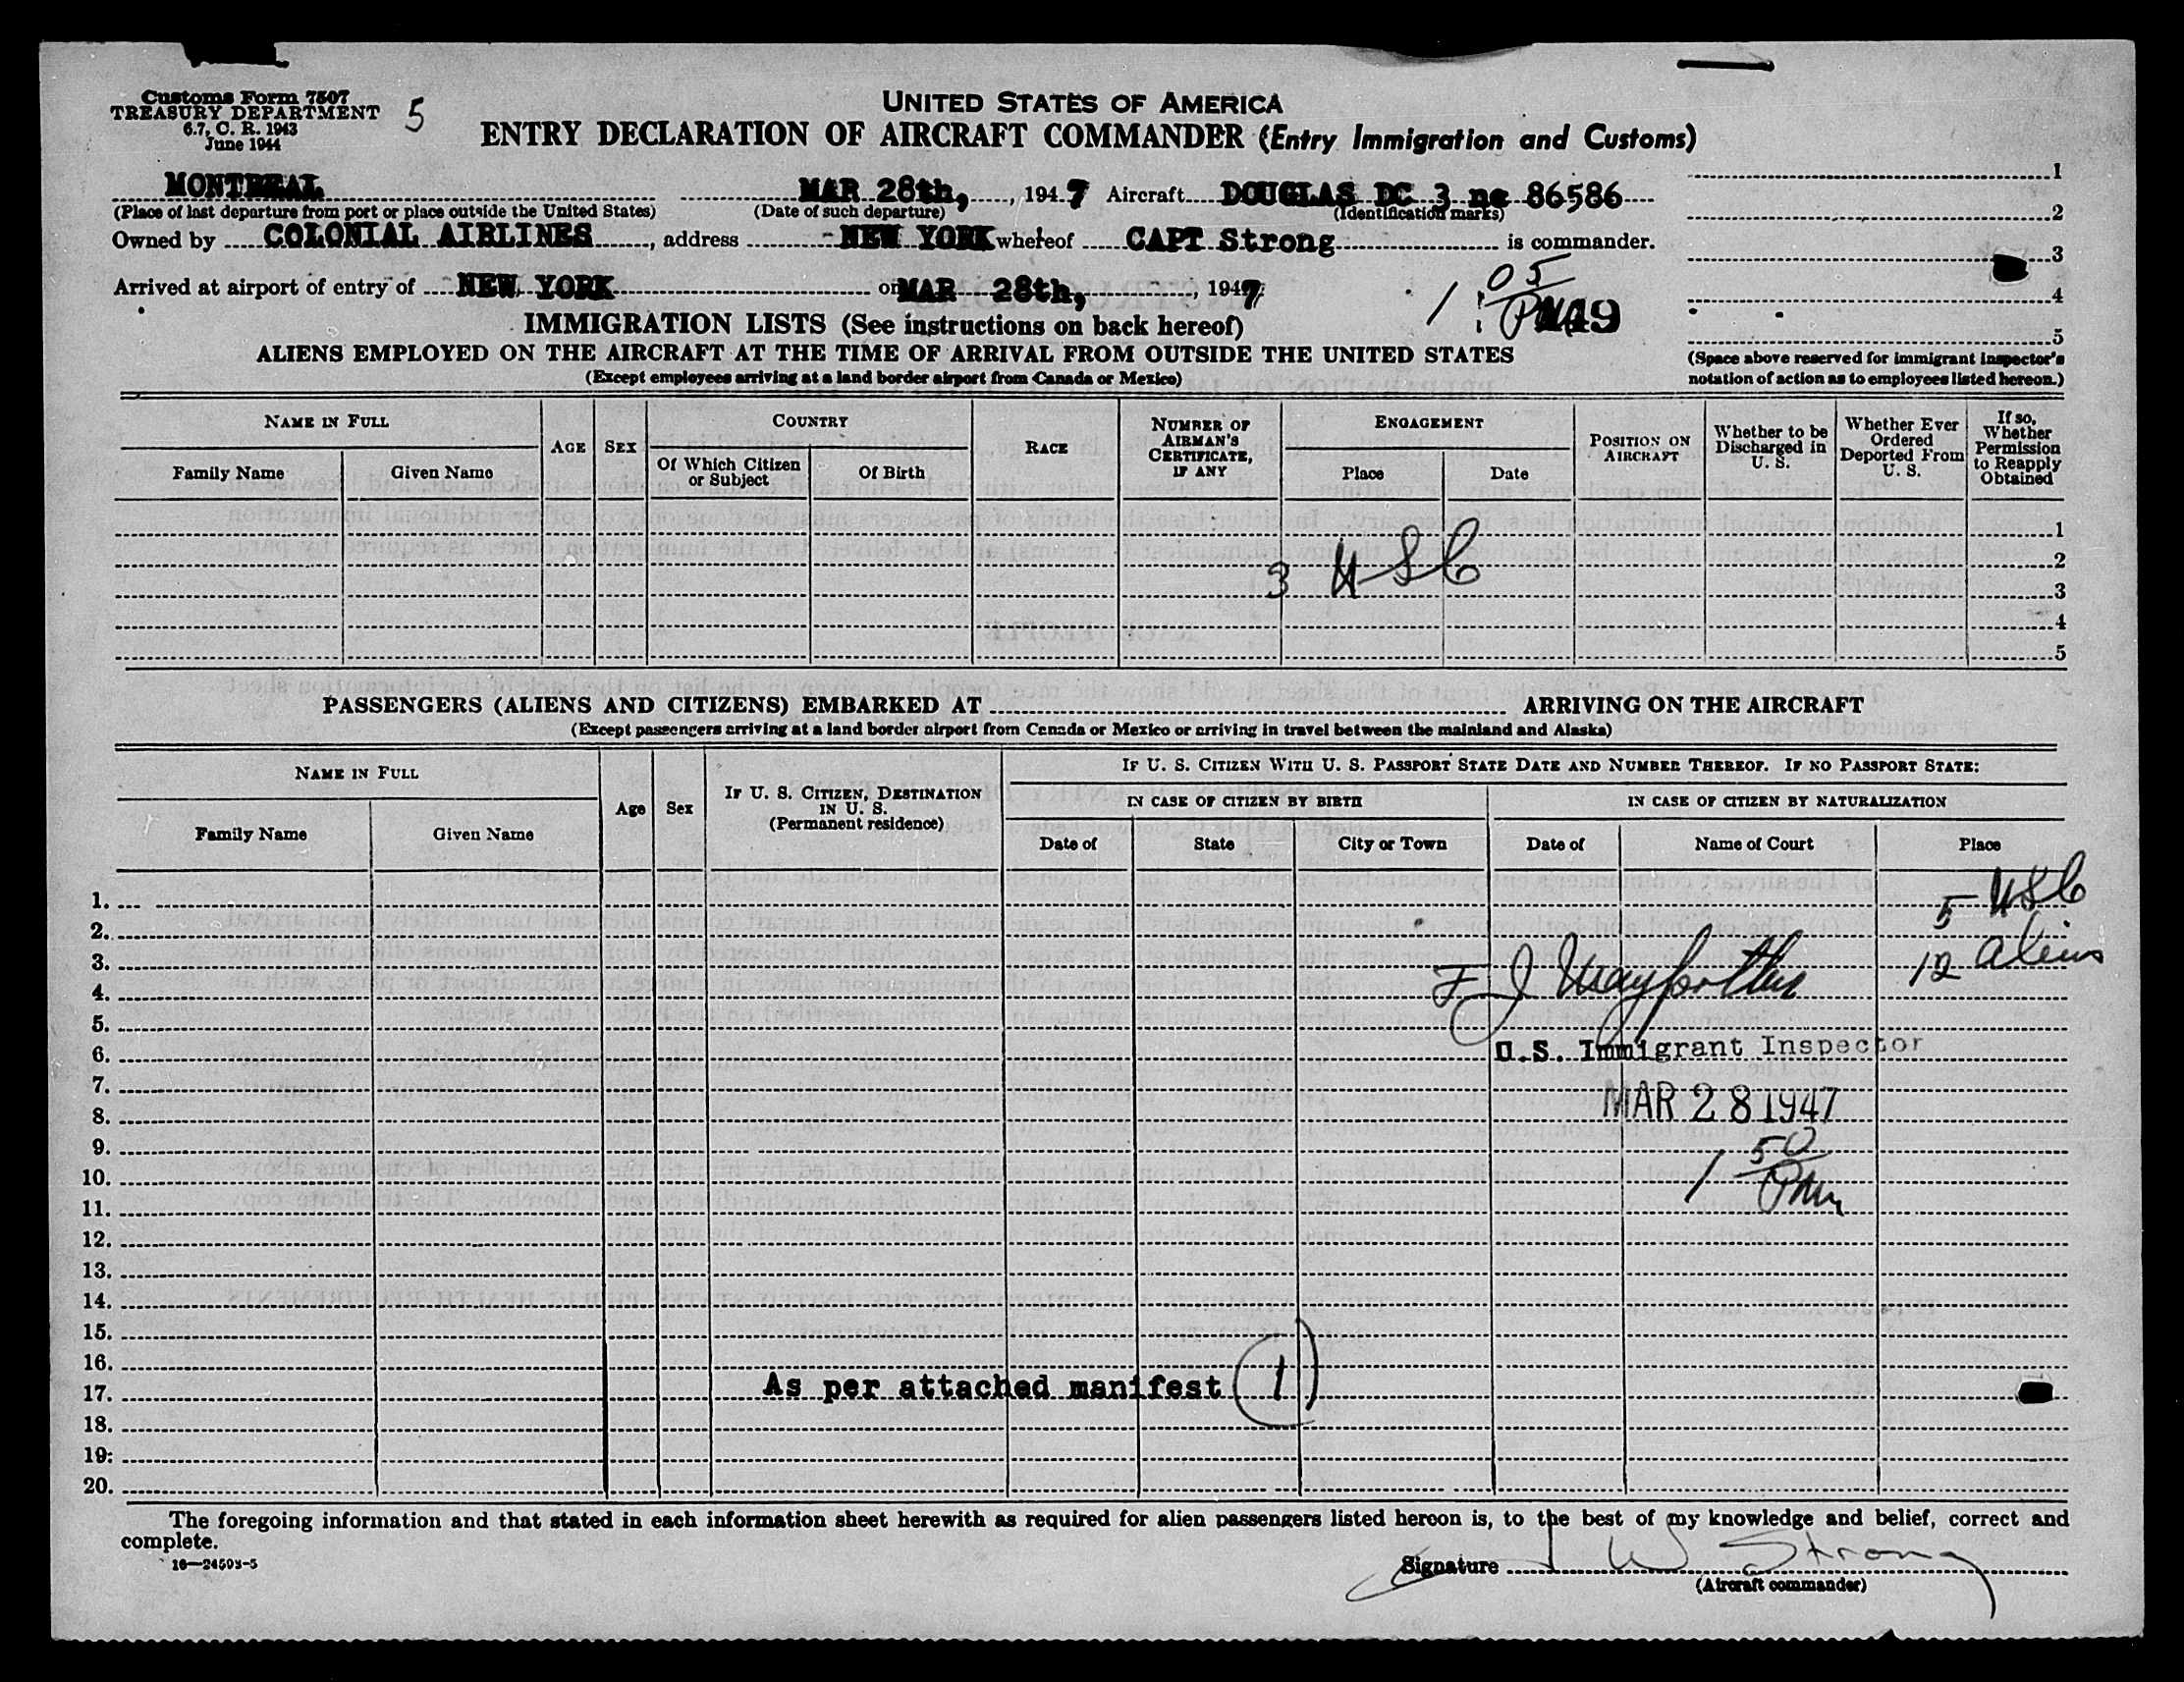 Customs Form 7507
TREASURY DEPARTMENT
6.7, C. R. 1943
June 1944
5
UNITED STATES OF AMERICA
ENTRY DECLARATION OF AIRCRAFT COMMANDER (Entry Immigration and Customs)
MONTREAL MAR 28th, , 1947 Aircraft DOUGLAS DC 3 nc 86586
(Place of last departure from port or place outside the United States) (Date of such departure) (Identification marks)
Owned by COLONIAL AIRLINES , address NEW YORK whereof CAPT Strong is commander.
Arrived at airport of entry of NEW YORK on MAR 28th, , 1947
1 05 PM
1
2
3
4
5
(Space above reserved for immigrant inspector's
notation of action as to employees listed hereon.)
IMMIGRATION LISTS (See instructions on back hereof)
ALIENS EMPLOYED ON THE AIRCRAFT AT THE TIME OF ARRIVAL FROM OUTSIDE THE UNITED STATES
(Except employees arriving at a land border airport from Canada or Mexico)
NAME IN FULL
Family Name
Given Name
AGE
SEX
COUNTRY
Of Which Citizen or Subject
Of Birth
RACE
NUMBER OF AIRMAN'S CERTIFICATE, IF ANY
ENGAGEMENT
Place
Date
POSITION ON AIRCRAFT
Whether to be Discharged in U. S.
Whether Ever Ordered Deported From U. S.
If so, Whether Permission to Reapply Obtained
1
2
3 USC
3
4
5
PASSENGERS (ALIENS AND CITIZENS) EMBARKED AT ARRIVING ON THE AIRCRAFT
(Except passengers arriving at a land border airport from Canada or Mexico or arriving in travel between the mainland and Alaska)
NAME IN FULL
Family Name
Given Name
Age
Sex
IF U. S. CITIZEN, DESTINATION IN U. S.
(Permanent residence)
IF U. S. CITIZEN WITH U. S. PASSPORT STATE DATE AND NUMBER THEREOF. IF NO PASSPORT STATE:
IN CASE OF CITIZEN BY BIRTH
IN CASE OF CITIZEN BY NATURALIZATION
Date of
State
City or Town
Date of
Name of Court
Place
1. 5 USC
2.
3. 12 aliens
4. F J
5.
6. U.S. Immigrant Inspector
7.
8. MAR 28 1947
9.
10. 1 50 PM
11.
12.
13.
14.
15.
16.
17. As per attached manifest 1
18.
19.
20.
The foregoing information and that stated in each information sheet herewith as required for alien passengers listed hereon is, to the best of my knowledge and belief, correct and
complete.
16—24593-5
Signature J W Strong
(Aircraft commander)